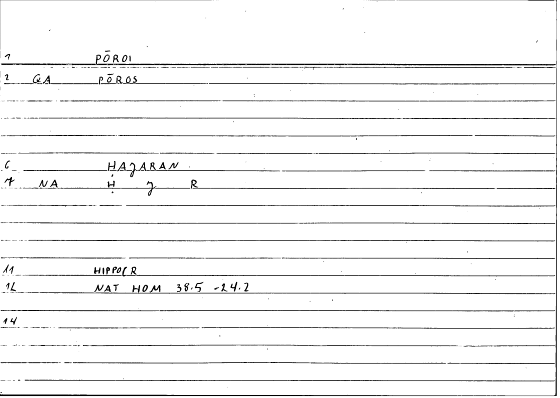 1 PŌROI
2 GA PŌROS
6 HAJARAN
7 NA Ḥ J R
11 HIPPOCR
12 NAT HOM 38.5 -24.2
14